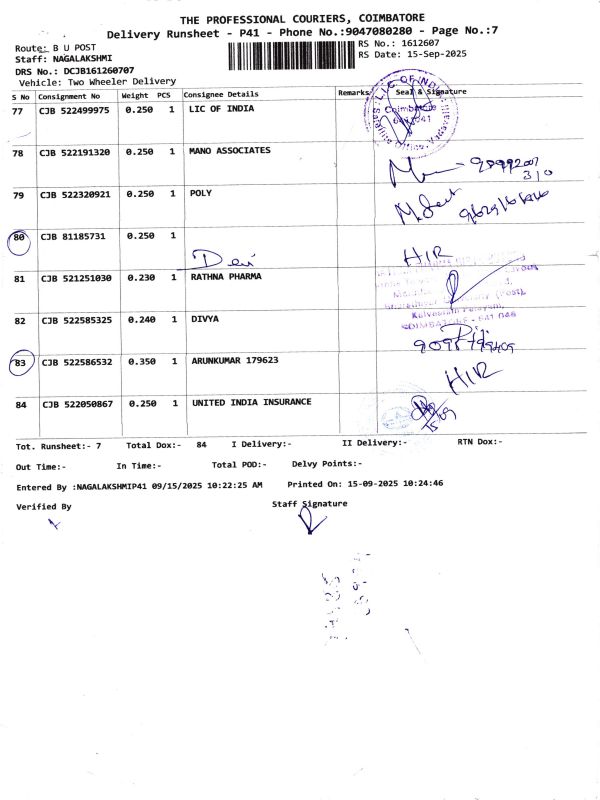 THE PROFESSIONAL COURIERS, COIMBATORE
Delivery Runsheet - P41 - Phone No.:9047080280 - Page No.:7
Route: B U POST
RS No.: 1612607
Staff: NAGALAKSHMI
RS Date: 15-Sep-2025
DRS No.: DCJB161260707
Vehicle: Two Wheeler Delivery
S No Consignment No Weight PCS Consignee Details Remarks Seal & Signature
77 CJB 522499975 0.250 1 LIC OF INDIA
L.I.C OF INDIA
Coimbatore
Satellite Office, Vadavalli
78 CJB 522191320 0.250 1 MANO ASSOCIATES
79 CJB 522320921 0.250 1 POLY
80 CJB 81185731 0.250 1 Devi HIR
81 CJB 521251030 0.230 1 RATHNA PHARMA
Kalveeram Palayam,
COIMBATORE - 641 046
82 CJB 522585325 0.240 1 DIVYA
83 CJB 522586532 0.350 1 ARUNKUMAR 179623 HIR
84 CJB 522050867 0.250 1 UNITED INDIA INSURANCE
15/09
Tot. Runsheet:- 7 Total Dox:- 84 I Delivery:- II Delivery:- RTN Dox:-
Out Time:- In Time:- Total POD:- Delvy Points:-
Entered By :NAGALAKSHMIP41 09/15/2025 10:22:25 AM Printed On: 15-09-2025 10:24:46
Verified By Staff Signature